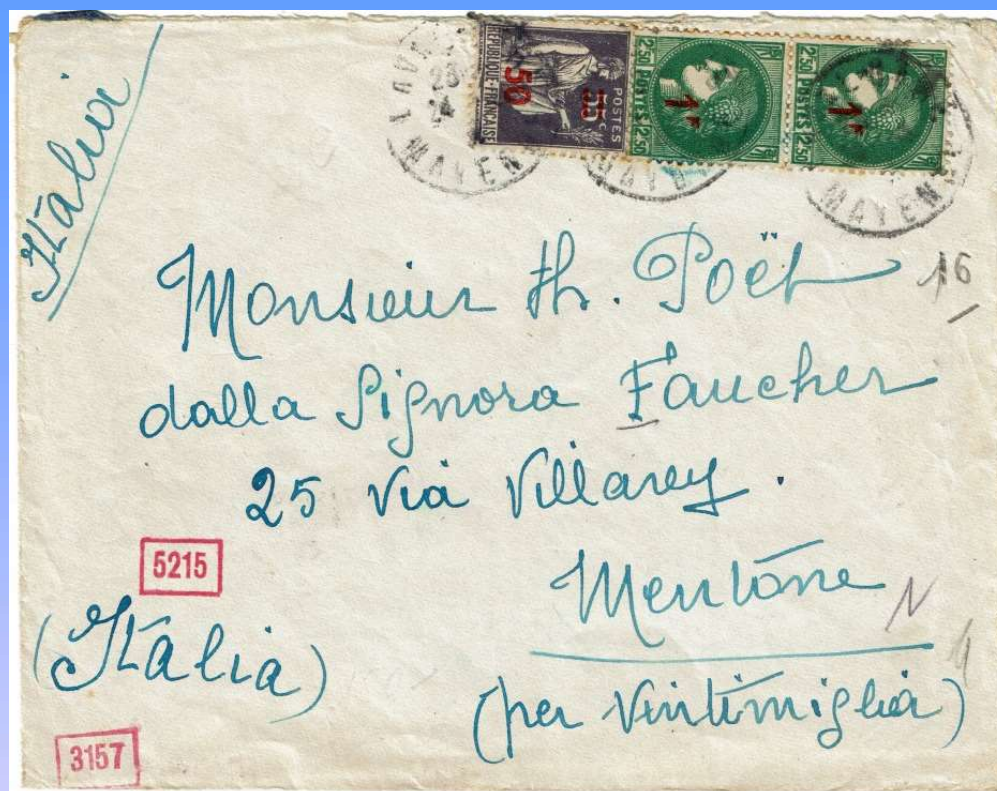 Italia
REPUBLIQUE FRANCAISE
POSTES
50
2F50 POSTES 2F50
1F
2F50 POSTES 2F50
1F
MAYEN
MAYEN
16
Monsieur Th. Poët
dalla Signora Faucher
25 Via Villarey.
5215
Mentone
N
(Italia)
(per Vintimiglia)
3157